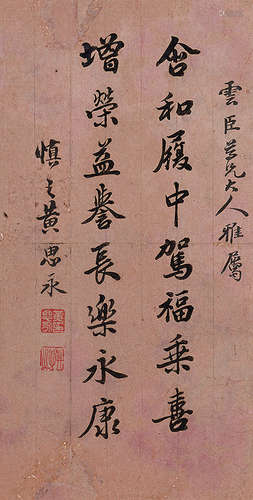 雲臣尊兄大人雅屬
含和履中駕福乘喜
增榮益譽長樂永康
慎之黃思永